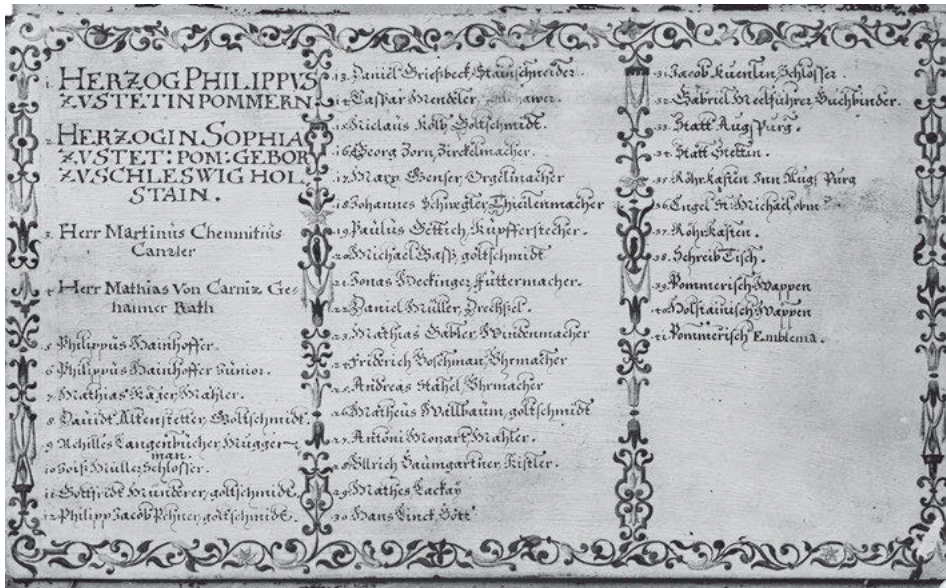 1. HERZOG PHILIPPVS
ZV STETIN POMMERN.
2. HERZOGIN SOPHIA
ZV STET: POM: GEBOR
ZV SCHLESWIG HOL
STAIN.
3. Herr Martinus Chemnitius
Canzler
4. Herr Mathias Von Carniz Ge=
haimer Rath
5. Philippus Hainhoffer.
6. Philippus Hainhoffer Junior.
7. Mathias Kager, Mahler.
8. Dauidt Altenstetter, Goltschmidt.
9. Achilles Langenbucher,
man.
10. Müller, Schlosser.
11. Gottfridt Münderer, goltschmidt.
12. Philipp Jacob goltschmidt.
13. Daniel Grießbeck, Stainschneider.
14. Caspar Mendeler,
15. Niclaus Kolb, Goltschmidt.
16. Georg Zorn, Zirckelmacher.
17. Marx Genser, Orgelmacher
18. Johannes Schwegler,
19. Paulus Göttich, Kupfferstecher.
20. Michael Gass, goltschmidt
21. Jonas Meckinger, Füttermacher.
22. Daniel Müller, Drechssel.
23. Mathias Gabler, Windenmacher
24. Friderich Boschman, Vhrmacher
25. Andreas Stahel, Vhrmacher
26. Matheus Wallbaum, goltschmidt
27. Antoni Mozart, Mahler.
28. Vllrich Baumgartner, Kistler.
29. Mathes Lackay
30. Hans
31. Jacob Kuenlin, Schlosser.
32. Gabriel Meelführer, Buchbinder.
33. Statt Augspurg.
34. Statt Stettin.
35. Röhrkasten Inn Augspurg
36. Engel St: Michael obm
37. Röhrkasten.
38. Schreib Tisch.
39. Pommerisch Wappen
40. Holstainisch Wappen
41. Pommerisch Emblema.